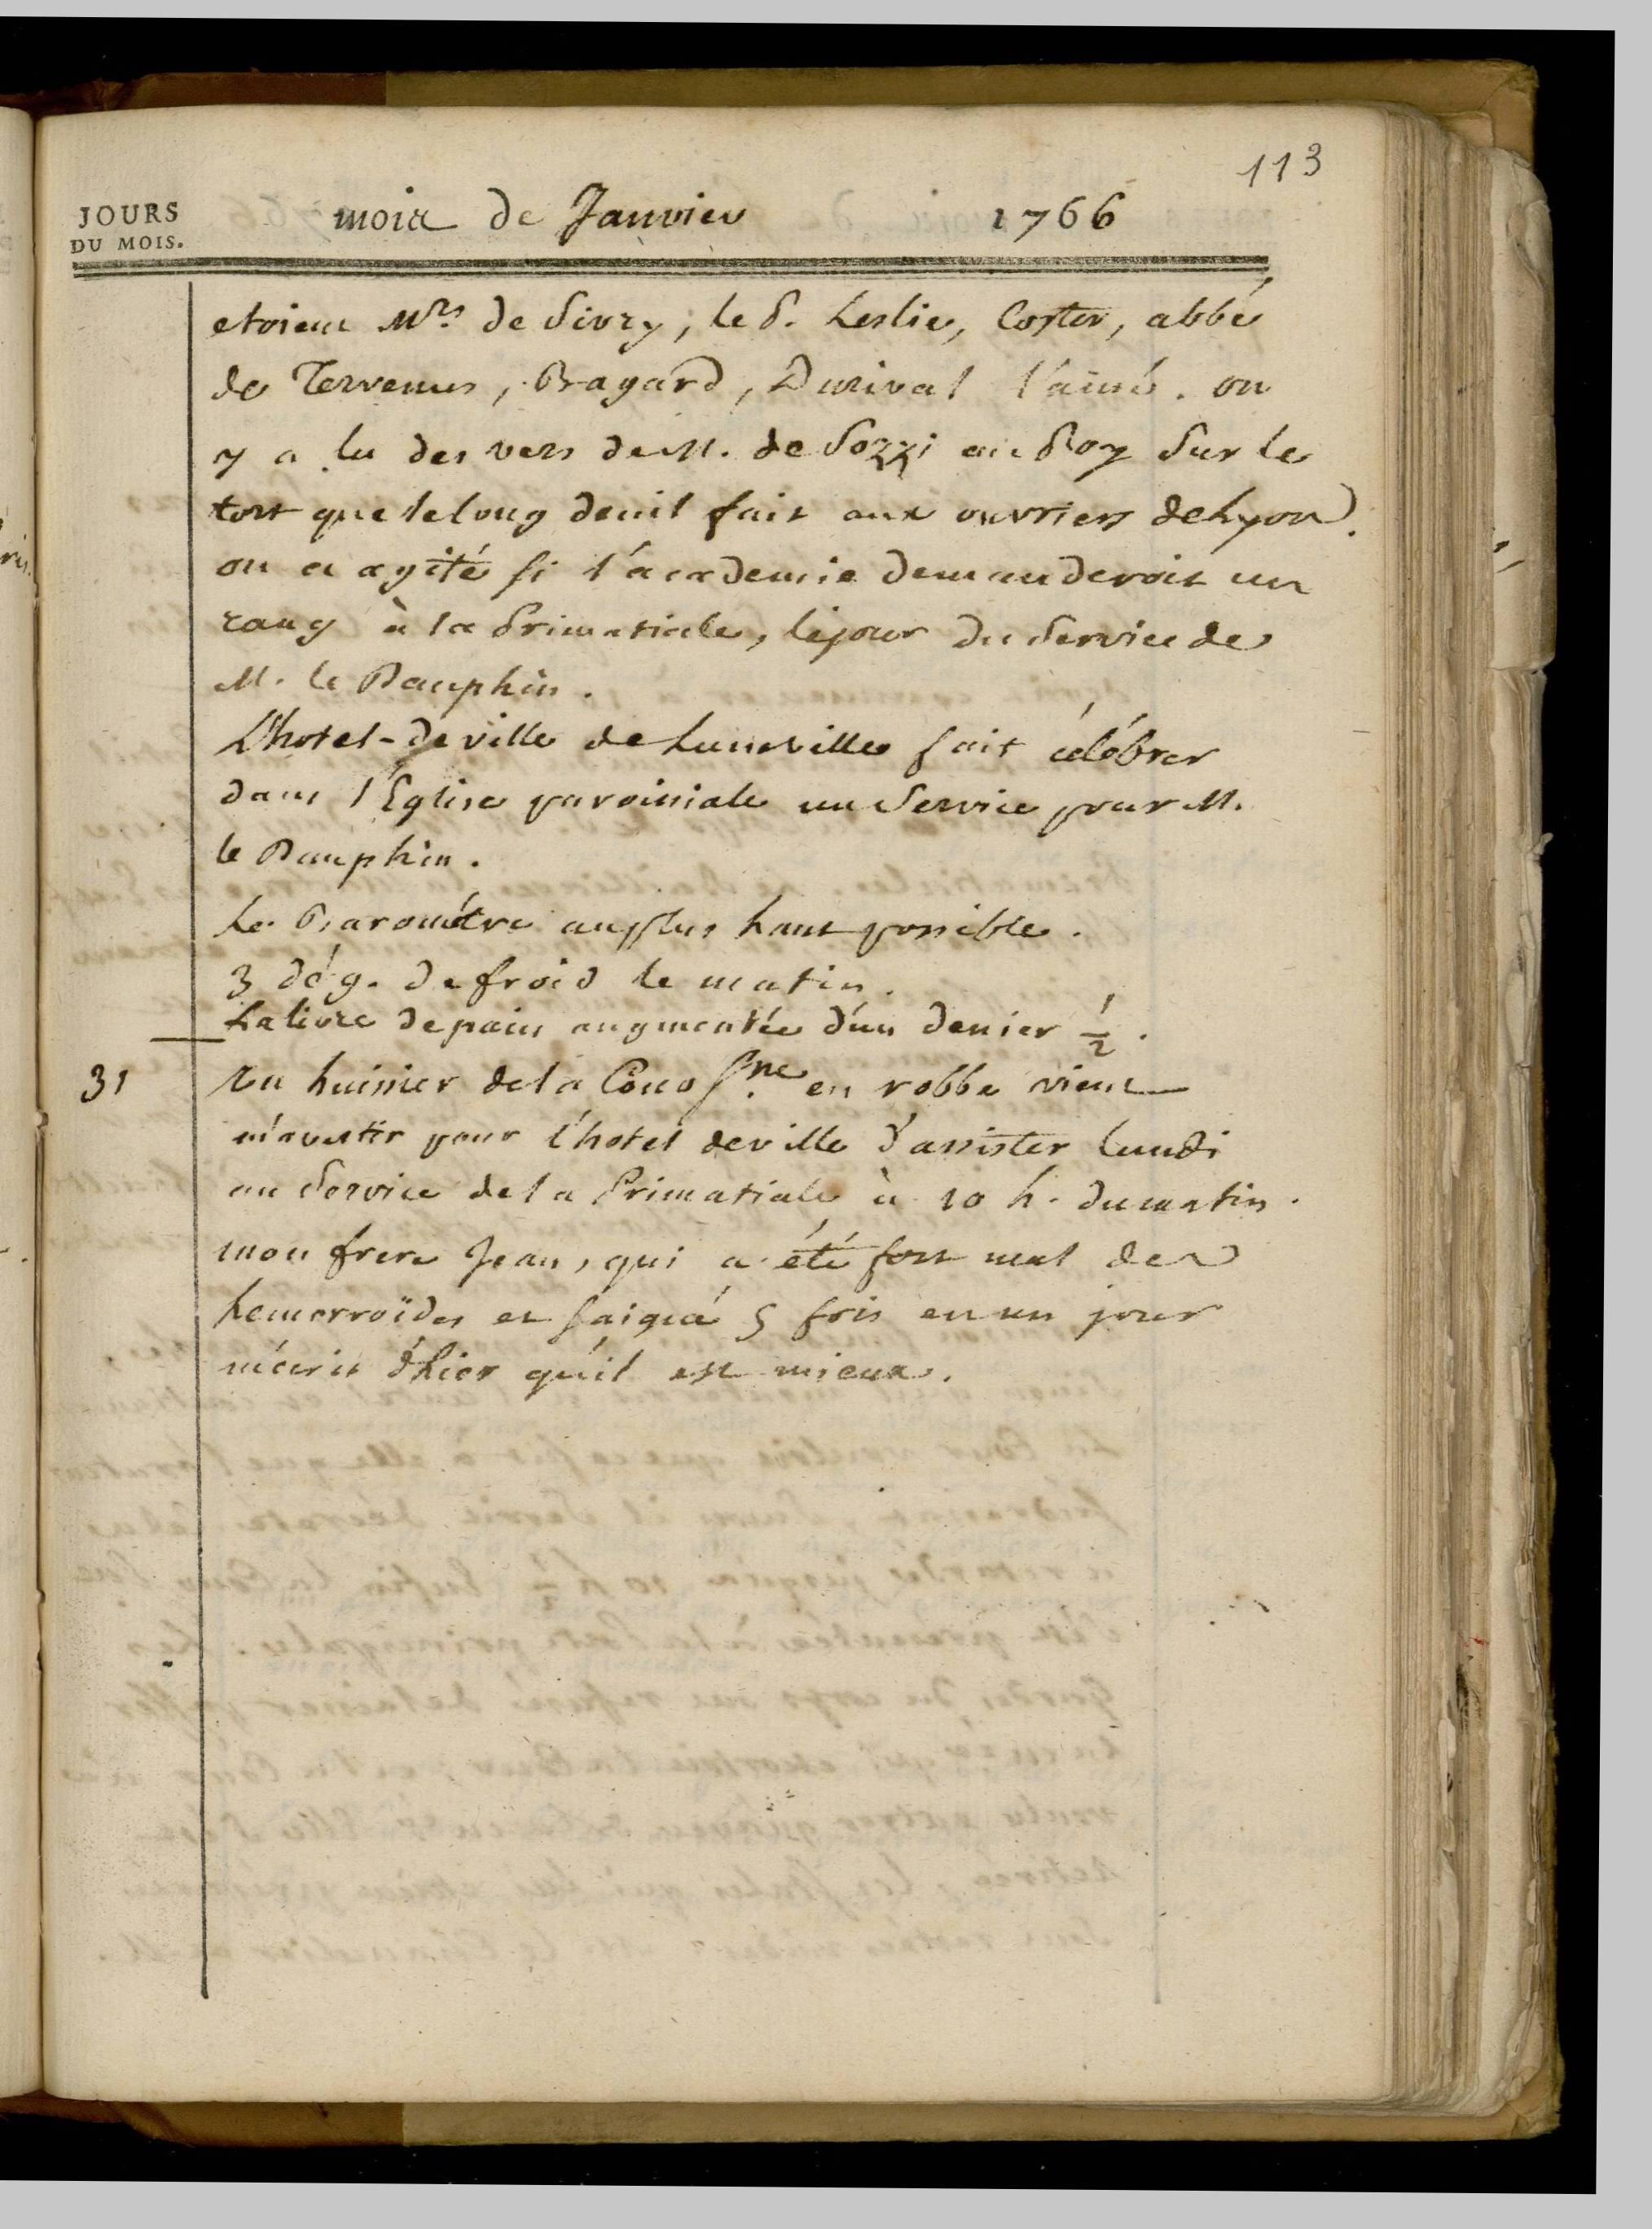 113
JOURS
DU MOIS.
mois de Janvier 1766
etoient Mrs. de Sivry, le P. Leslie, Coster, abbé
de Tervenus, Bagard, Durival l'ainé. on
y a lu des vers de M. de Sozzi au Roy sur le
tort que le long deuil fait aux ouvriers de Lyon.
on a agité si l'academie demanderoit un
rang à la Primatiale, le jour du Service de
M. le Dauphin.
L'hotel-de ville de Luneville fait célébrer
dans l'Eglise paroissiale un Service pour M.
le Dauphin.
Le Barométre au plus haut possible.
3 dég. de froid le matin.
La livre de pain augmentée d'un denier 1/2.
31 Un huissier de la Cour Sne. en robbe vient
m'avertir pour l'hotel de ville d'assister lundi
au Service de la Primatiale à 10 h. du matin.
mon frere Jean, qui a été fort mal des
hemorroïdes et saigné 5 fois en un jour
m'ecrit d'hier qu'il est mieux.